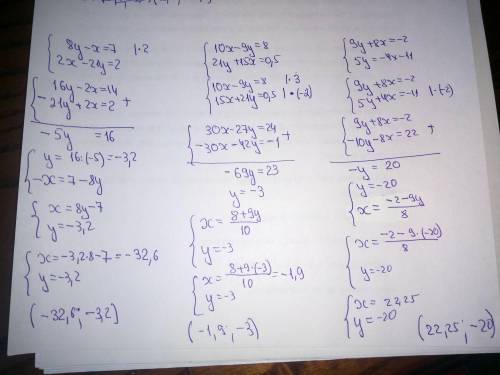 8y-x=7 |·2
2x-21y=2
16y-2x=14
-21y+2x=2 +
-5y =16
y=16:(-5)=-3,2
-x=7-8y
x=8y-7
y=-3,2
x=-3,2·8-7=-32,6
y=-3,2
(-32,6; -3,2)
10x-9y=8
21y+15x=0,5
10x-9y=8 |·3
15x+21y=0,5 |·(-2)
30x-27y=24
-30x-42y=-1 +
-69y=23
y=-3
x=8+9y/10
y=-3
x=8+9·(-3)/10=-1,9
y=-3
(-1,9; -3)
9y+8x=-2
5y=-4x-11
9y+8x=-2
5y+4x=-11 |·(-2)
9y+8x=-2
-10y-8x=22 +
-y=20
y=-20
x=-2-9y/8
x=-2-9·(-20)/8
y=-20
x=22,25
y=-20
(22,25; -20)